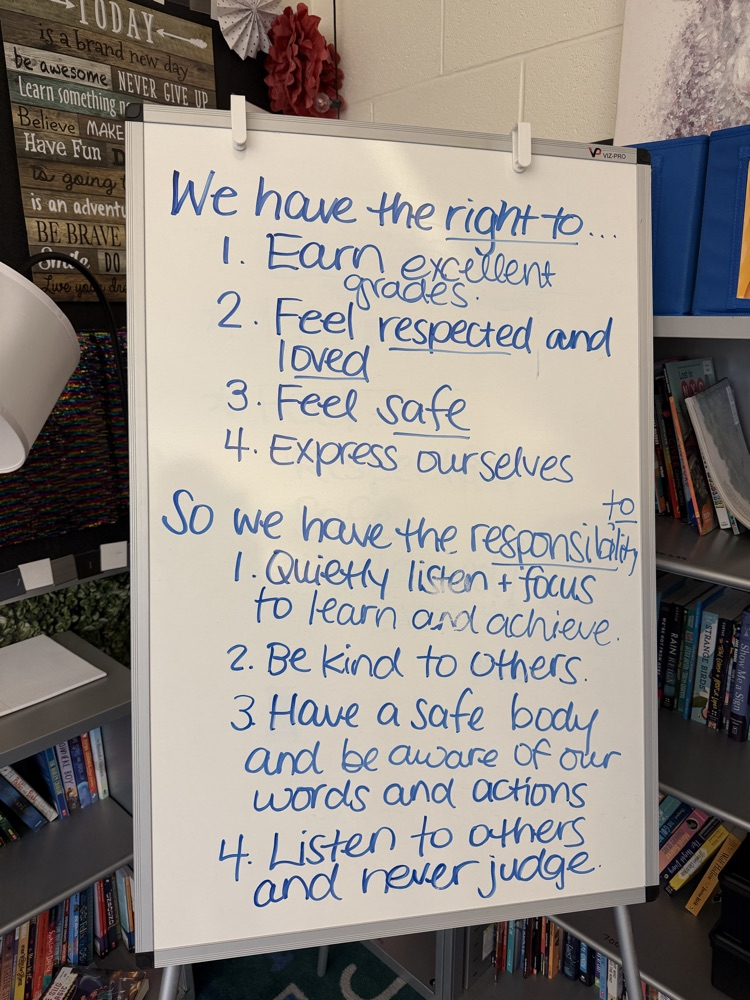 TODAY
is a brand new day
be awesome NEVER GIVE UP
Learn something
Believe MAKE
Have Fun
is going
is an adventu
BE BRAVE
Smile DO
Live your
VIZ-PRO
We have the right to...
1. Earn excellent
grades.
2. Feel respected and
loved
3. Feel safe
4. Express ourselves
So we have the responsibility to
1. Quietly listen + focus
to learn and achieve.
2. Be kind to others.
3. Have a safe body
and be aware of our
words and actions
4. Listen to others
and never judge.
STRANGE BIRDS
Show Me a Sign